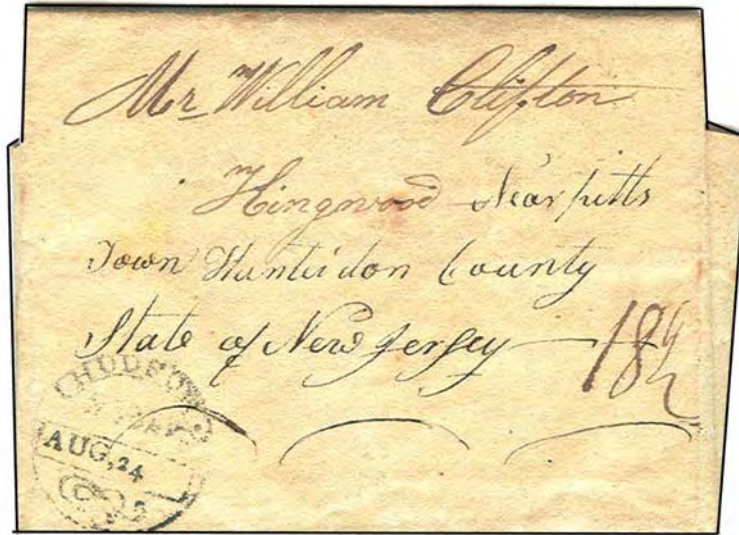 Mr William Clifton
Kingwood Near pitts
Town Hunterdon County
State of New Jersey 18 1/2
HUDSON
AUG, 24